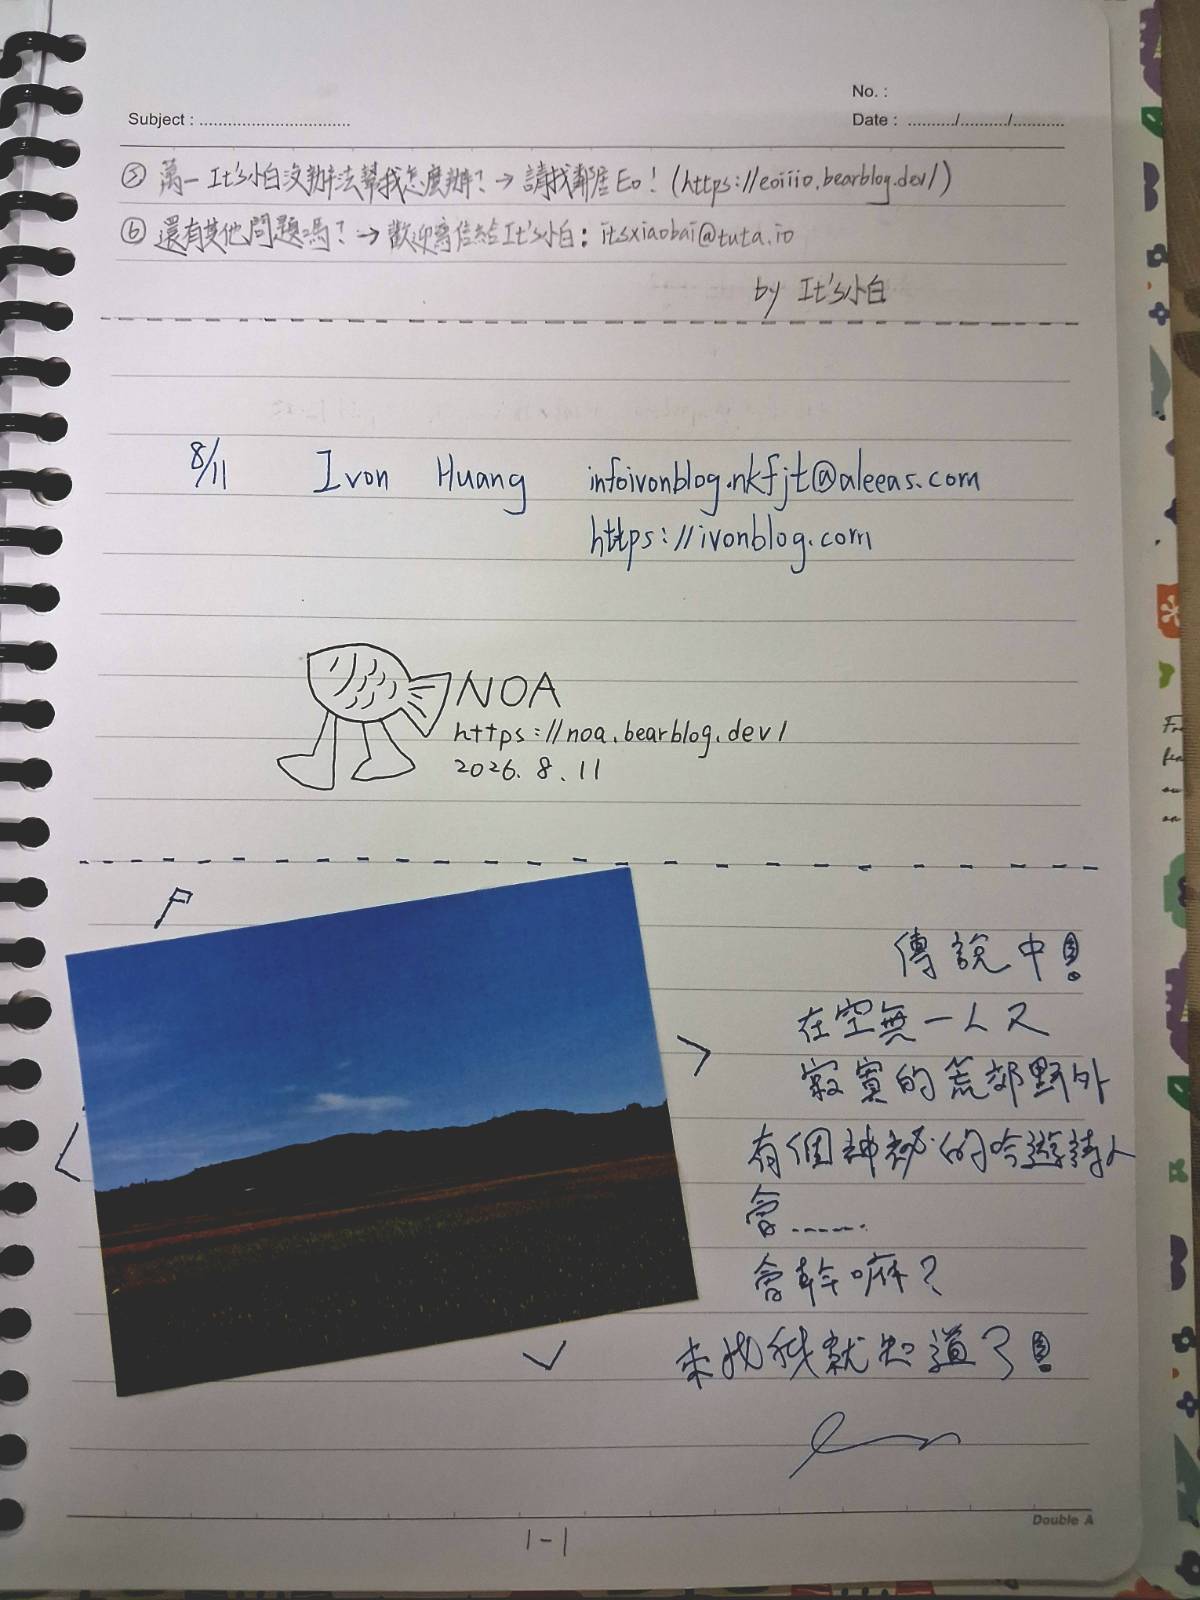 No. :
Subject : ................................
Date : ........../........../...........
⑤ 萬一 It's小白沒辦法幫我怎麼辦? → 請找鄰居Eo! (https://eoiiio.bearblog.dev/)
⑥ 還有其他問題嗎? → 歡迎寄信給It's小白: itsxiaobai@tuta.io
by It's小白
8/11 Ivon Huang infoivonblog.nkfjt@aleeas.com
https://ivonblog.com
NOA
https://noa.bearblog.dev/
2026.8.11
傳說中!
在空無一人又
寂寞的荒郊野外
有個神祕的吟遊詩人
會.......
會幹嘛?
來找我就知道了!
Double A
1-1